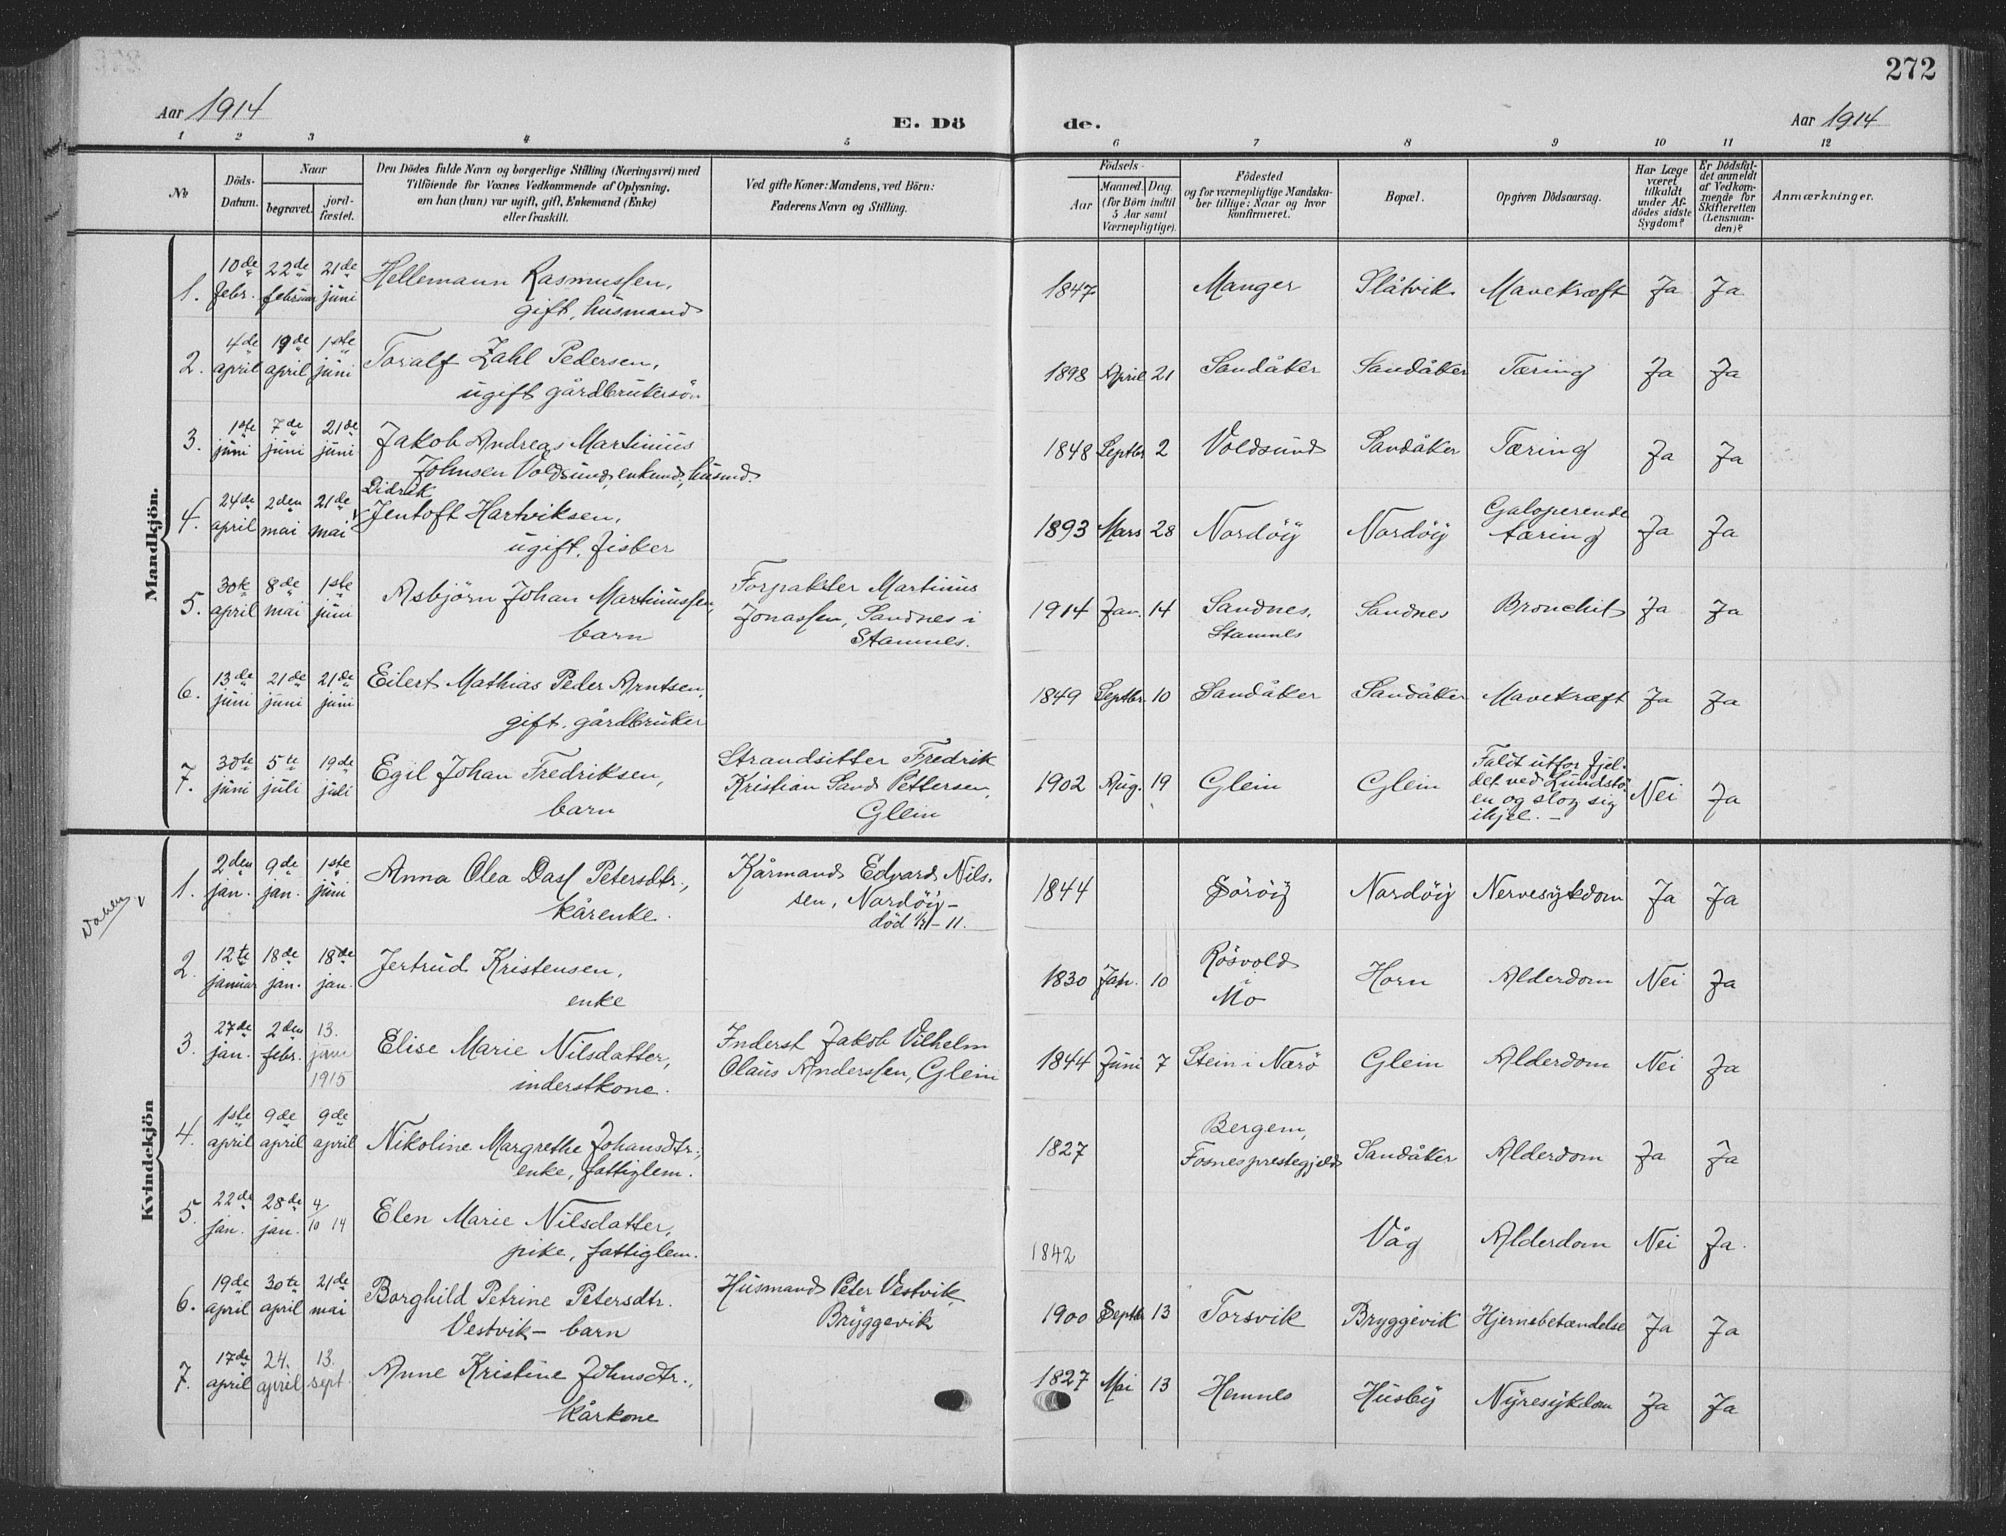 272
Aar 1914
E. Dö
de.
Aar 1914
1 2 3 4 5 6 7 8 9 10 11 12
№
Döds-
Datum.
Naar
begravet.
jord-
fæstet.
Den Dödes fulde Navn og borgerlige Stilling (Næringsvei) med
Tilföiende for Voxnes Vedkommende af Oplysning,
om han (hun) var ugift, gift, Enkemand (Enke)
eller fraskilt.
Ved gifte Koner: Mandens, ved Börn:
Faderens Navn og Stilling.
Födsels-
Aar
Maaned. Dag.
(for Börn indtil
5 Aar samt
Værnepligtige).
Födested
og for værnepligtige Mandska-
ber tillige: Naar og hvor
konfirmeret.
Bopæl.
Opgiven Dödsaarsag.
Har Læge
været
tilkaldt
under Af-
dödes sidste
Sygdom?
Er Dödsfal-
det anmeldt
af Vedkom-
mende for
Skifteretten
(Lensman-
den)?
Anmærkninger.
Mandkjön.
1. 10de febr. 22de februar 21de juni Hellemann Rasmussen,
gift, husmand
1847 Manger Slåtvik Mavekræft Ja Ja
2. 4de april 19de april 1ste juni Toralf Zahl Pedersen,
ugift gårdbrukersön
1898 April 21 Sandåker Sandåker Tæring Ja Ja
3. 1ste juni 7de juni 21de juni Jakob Andreas Martinius
Johnsen Voldsund, enkemd., husmd.
1848 Septbr 2 Voldsund Sandåker Tæring Ja Ja
Didrik
4. 24de april 2den mai 21de mai Jentoft Hartviksen,
ugift, fisker
1893 Mars 28 Nordöy Nordöy Galoperende
tæring Ja Ja
5. 30te april 8de mai 1ste juni Asbjörn Johan Martinussen,
barn
Forpakter Martinus
Jonassen, Sandnes i
Stamnes.
1914 Jan. 14 Sandnes,
Stamnes
Sandnes Bronchit Ja Ja
6. 13de juni 21de juni 21de juni Eilert Mathias Peder Arntsen,
gift, gårdbruker
1849 Septbr. 10 Sandåker Sandåker Mavekræft Ja Ja
7. 30te juni 5te juli 19de juli Egil Johan Fredriksen,
barn
Strandsitter Fredrik
Kristian Sand Pettersen,
Glein
1902 Aug. 19 Glein Glein Faldt utfor fjel-
det ved Lundstö-
en og slog sig
ihjel. –
Nei Ja
Kvindekjön
1. 2den jan. 9de jan. 1ste juni Anna Olea Dass Petersdtr.,
kårenke.
Kårmand Edvard Nils-
sen, Nordöy –
1844 Söröy Nordöy Nervesykdom Ja Ja
2. 12te januar 18de jan. 18de jan. Jertrud Kristensen,
enke
1830 Jan. 10 Rösvold
i
Mo
Horn Alderdom Nei Ja
3. 27de jan. 2den febr. 13. juni
1915
Elise Marie Nilsdatter,
inderstkone.
Inderst Jakob Vilhelm
Olaus Anderssen, Glein
1844 Juni 7 Stein i Nærö Glein Alderdom Nei Ja
4. 1ste april 9de april 9de april Nikoline Margrethe Johansdtr.,
enke, fattiglem.
1827 Bergem,
Fosnes prestegjeld
Sandåker Alderdom Ja Ja
5. 22de jan. 28de jan. 4/10 14 Elen Marie Nilsdatter,
pike, fattiglem.
1842 Våg Alderdom Nei Ja.
6. 19de april 30te april 21de mai Borghild Petrine Petersdtr.
Vestvik – barn
Husmand Peter Vestvik,
Bryggevik
1900 Septbr 13 Torsvik Bryggevik Hjernebetændelse Ja Ja
7. 17de april 24. april 13. sept. Anne Kristine Johnsdtr.,
kårkone
1827 Mai 13 Hemnes Husby Nyresykdom Ja Ja